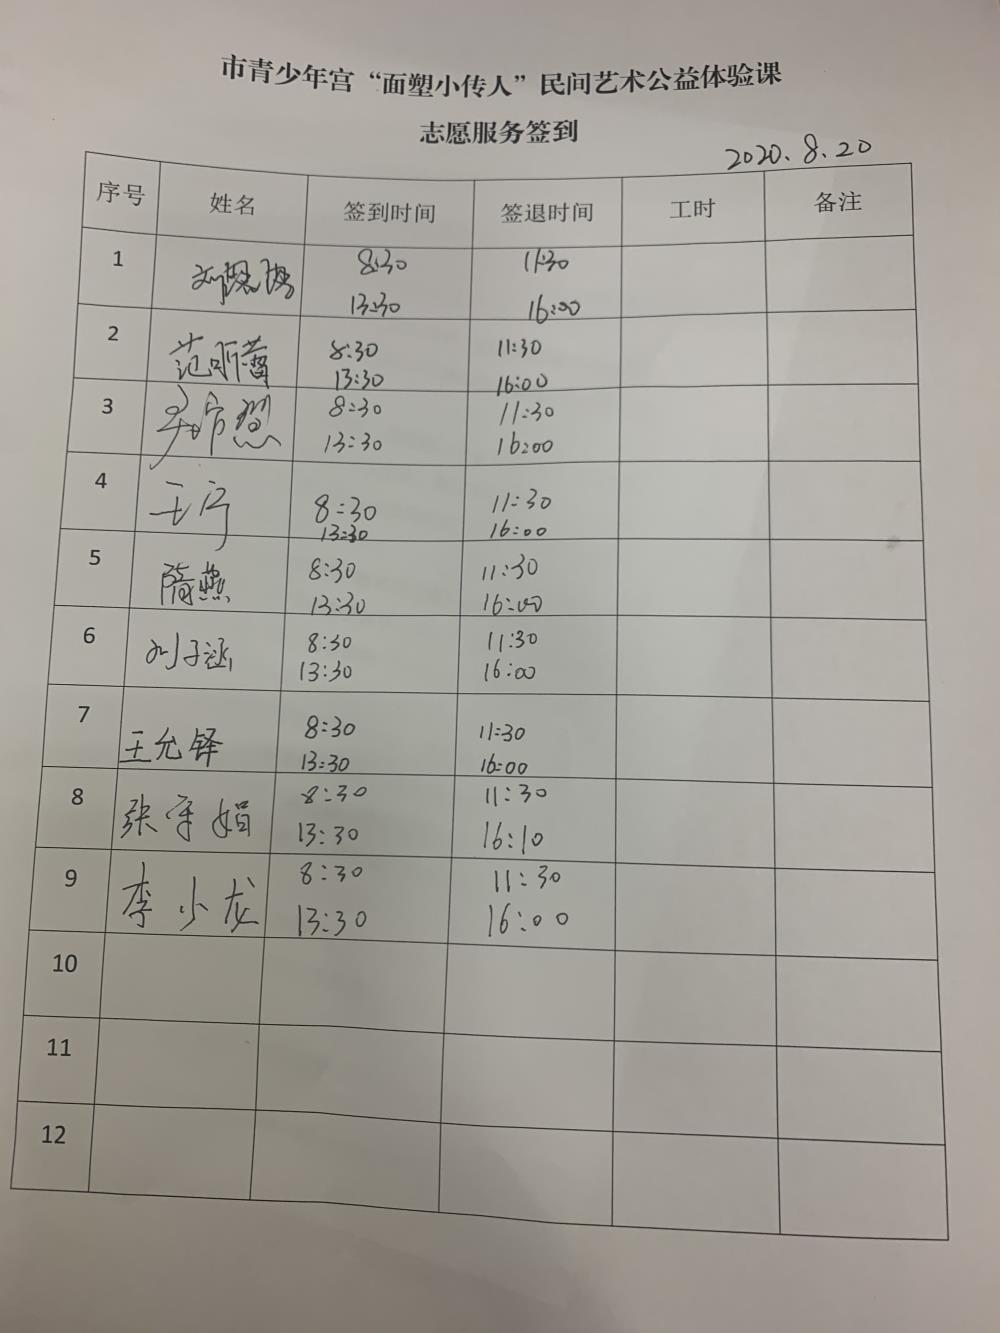 市青少年宫“面塑小传人”民间艺术公益体验课
志愿服务签到
2020.8.20
序号 姓名 签到时间 签退时间 工时 备注
1 8:30 11:30
13:30 16:00
2 范昕蕾 8:30 11:30
13:30 16:00
3 8:30 11:30
13:30 16:00
4 王宁 8:30 11:30
13:30 16:00
5 隋燕 8:30 11:30
13:30 16:00
6 刘子涵 8:30 11:30
13:30 16:00
7 王允铎 8:30 11:30
13:30 16:00
8 张守娟 8:30 11:30
13:30 16:10
9 李小龙 8:30 11:30
13:30 16:00
10
11
12